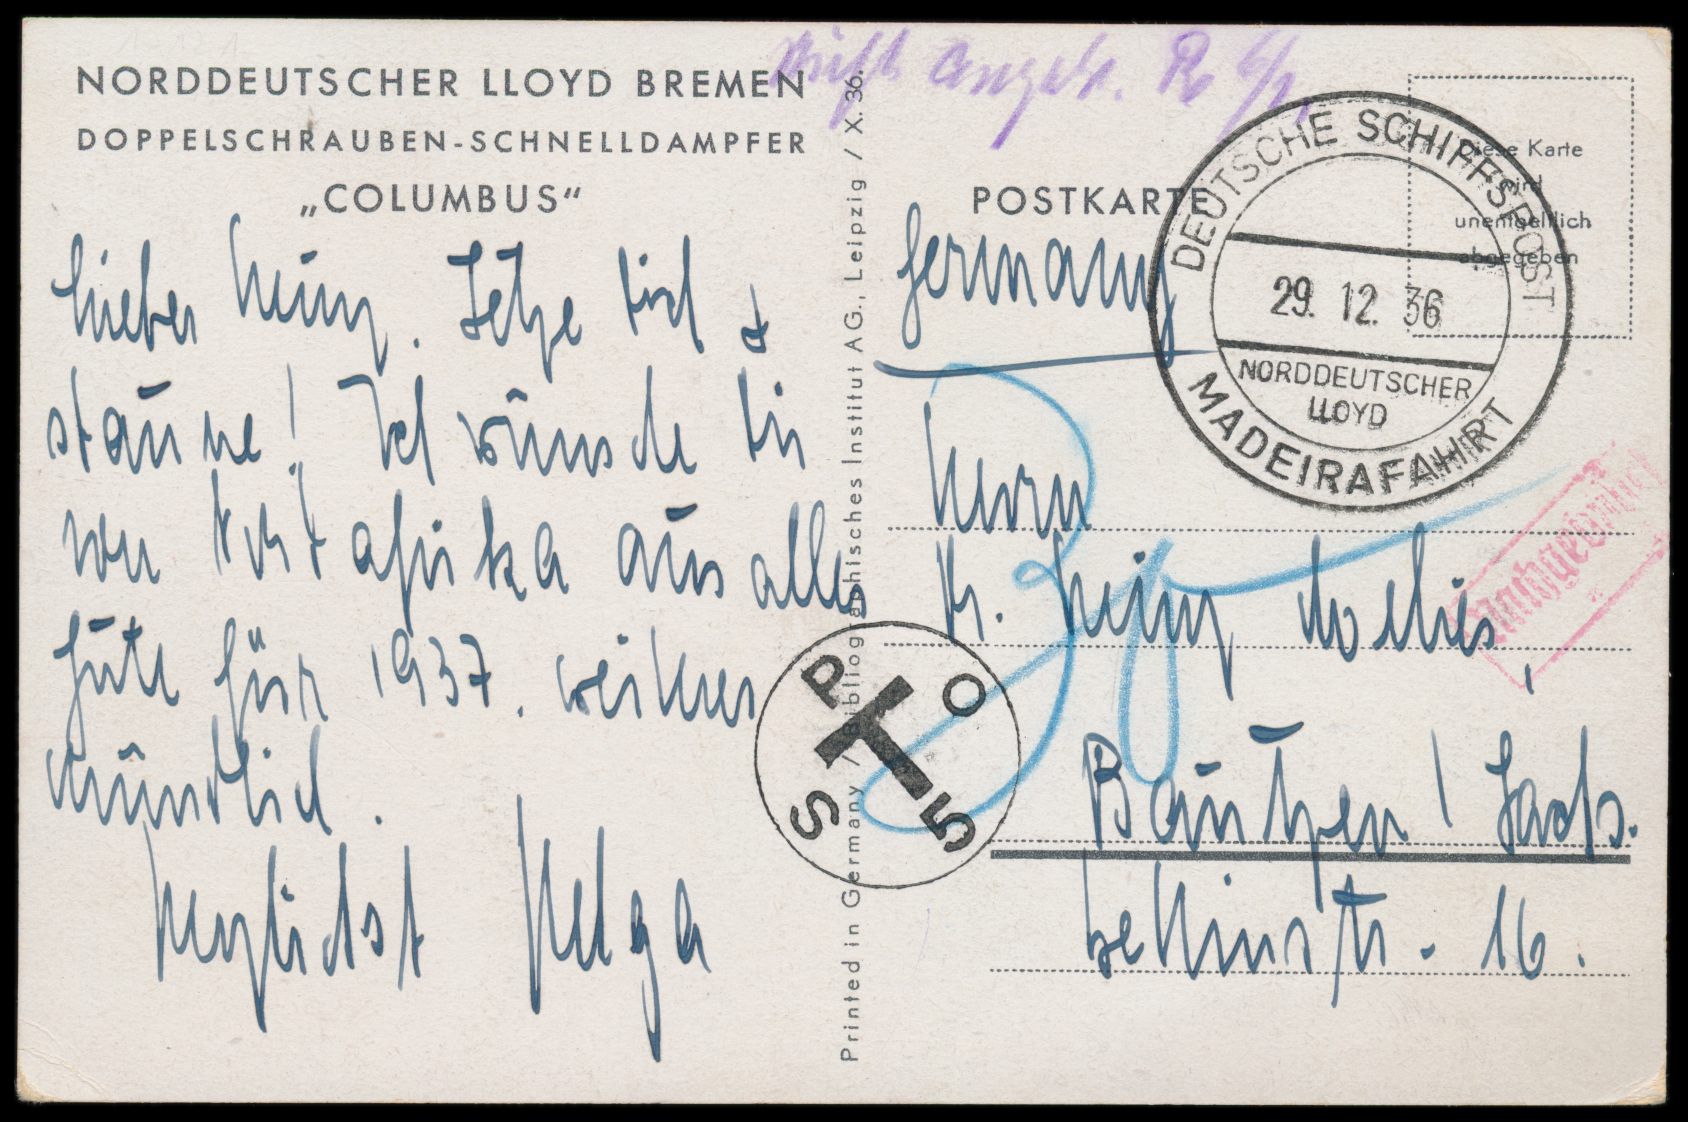 NORDDEUTSCHER LLOYD BREMEN
DOPPELSCHRAUBEN-SCHNELLDAMPFER
„COLUMBUS“
Lieber Heinz. Setze dich &
staune! Ich wünsche dir
von Nordafrika aus alles
Gute für 1937. weiteres
mündlich.
Herzlichst Helga
Printed in Germany / Bibliographisches Institut AG., Leipzig / X. 36.
nicht anget. 6/1.
POSTKARTE
Diese Karte
wird
unentgeltlich
abgegeben
DEUTSCHE SCHIFFSPOST
29. 12. 36
NORDDEUTSCHER
LLOYD
MADEIRAFAHRT
Germany
Herrn
Dr. Heinz
Bautzen / Sachs.
16.
Nachgebühr
T
P O S 5